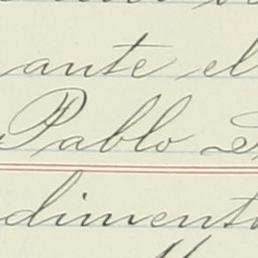 ante el
Pablo
dimento